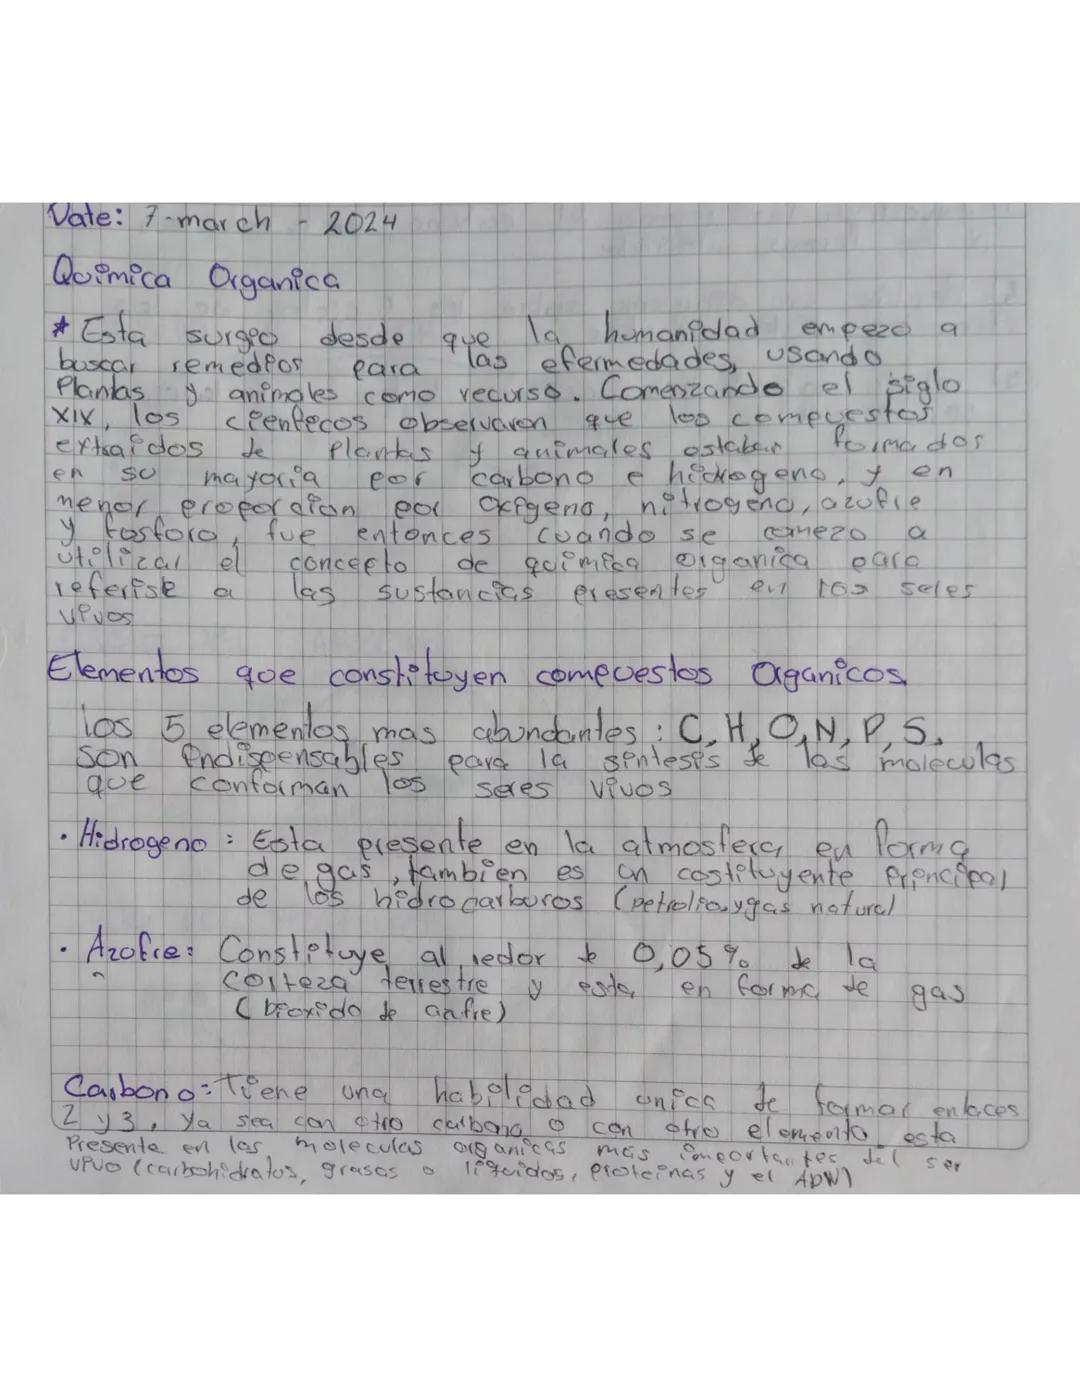 Date: 7-march - 2024
Quimica Organica
* Esta surgio desde que la humanidad empezo a
buscar remedios para las efermedades, usando
Plantas y animales como recurso. Comenzando el siglo
XIX, los cientecos observaron que los compuestos
extraidos de plantas y animales estaban formados
en su mayoria por carbono e hidrogeno, y en
menor proporcion por oxigeno, nitrogeno, azufre
y fosforo, fue entonces cuando se comezo a
utilizar el concepto de quimica organica para
referise a las sustancias presentes en los seres
vivos
Elementos que constituyen compuestos Organicos
Los 5 elementos mas abundantes : C, H, O, N, P, S.
son indispensables para la sintesis de las moleculas
que conforman los seres vivos
• Hidrogeno : Esta presente en la atmosfera en forma
de gas, tambien es un costituyente principal
de los hidrocarburos (petrolio y gas natural
• Azofre: Constituye al redor de 0,05% de la
corteza terrestre y esta en forma de gas
(bioxido de anfre)
Carbono: Tiene una habilidad unica de formar enlaces
2 y 3, Ya sea con otro carbono o con otro elemento esta
Presente en las moleculas organicas mas importantes del ser
vivo (carbohidratos, grasas o liquidos, proteinas y el ADN)